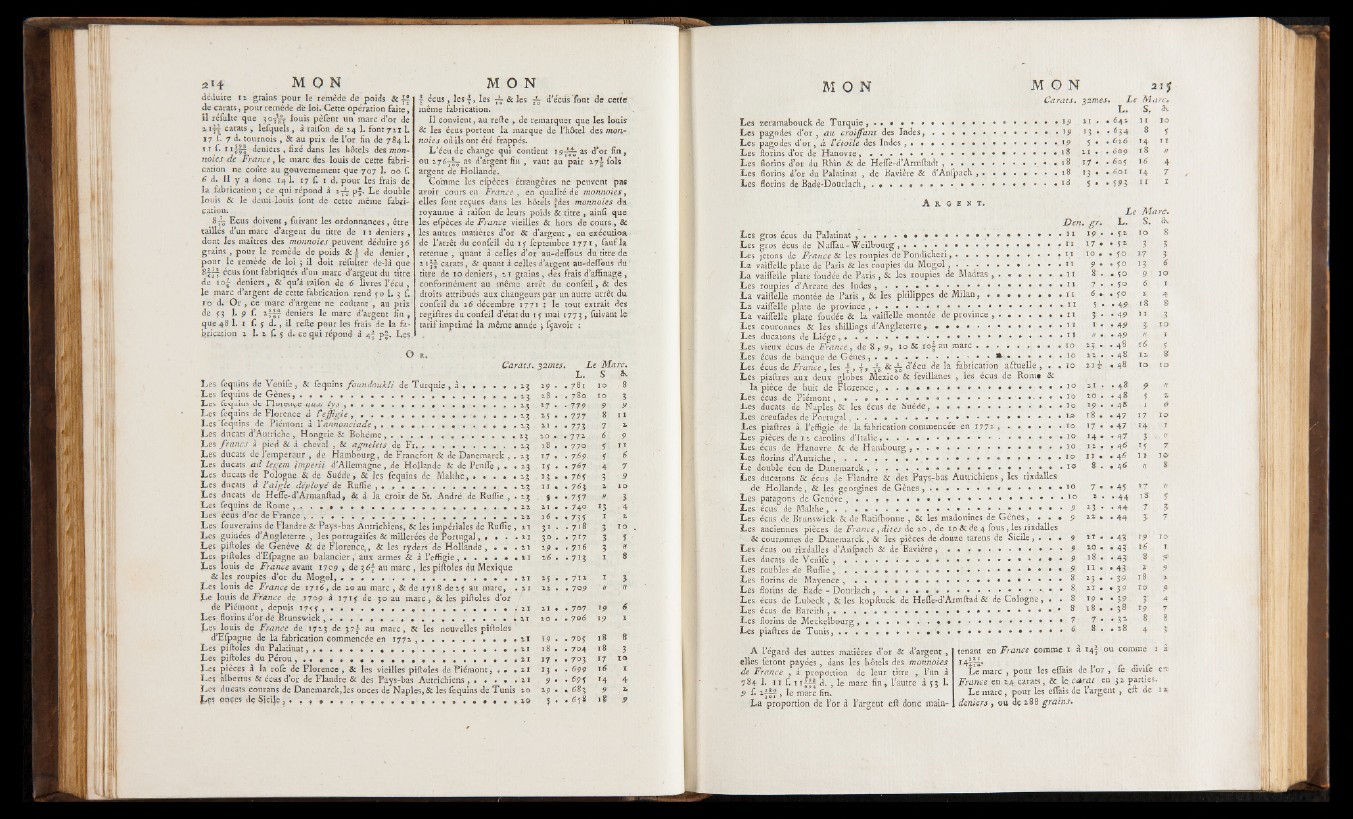 214 MON MON
déduire 12 grains pour le remède de poids &
de carats, pour remède de loi. Cette opération faite,
il résulte que louis pèsent un marc d'or de
carats, lesquels, à raison de 24 l. font 721 l.
17 s. 7 d. tournois, & au prix de l'or fin de 784 l.
11 s. deniers, fixé dans les hôtels des mon-
noies de France, le marc des louis de cette fabri-
cation ne coûte au gouvernement que 707 l. 00 s.
6 d. Il y a donc 14 l. 17 s. 1 d. pour les frais de
la fabrication ; ce qui répond à Le double
louis & le demi-louis sont de cette même fabri-
cation.
Ecus doivent, suivant les ordonnances, être
taillés d'un marc d'argent du titre de 11 deniers,
dont les maîtres des monnoies peuvent déduire 36
grains, pour le remède de poids & de denier,
pour le remède de loi ; il doit résulter de-là que
écus sont fabriqués d'un marc d'argent du titre
de deniers, & qu'à raison de 6 livres l'écu,
le marc d'argent de cette fabrication rend 50 l. 3 s.
10 d. Or, ce marc d'argent ne coûtant, au prix
de 53 l. 9 s. deniers le marc d'argent fin,
que 48 l. 1 s. 5 d., il reste pour les frais de la fa-
brication 2 l. 2 s. 5 d. ce qui répond à Les
écus, les les & les d'écus sont de cette
même fabrication.
Il convient, au reste, de remarquer que les louis
& les écus portent la marque de l'hôtel des mon-
noies où ils ont été frappés.
L'écu de change qui contient as d'or fin,
ou as d'argent fin, vaut au pair sols
argent de Hollande.
Comme les espèces étrangères ne peuvent pas
avoir cours en France, en qualité de monnoies,
elles sont reçues dans les hôtels des monnoies du
royaume à raison de leurs poids & titre, ainsi que
les espèces de France vieilles & hors de cours, &
les autres matières d'or & d'argent, en exécution
de l'arrêt du conseil du 15 septembre 1771, sauf la
retenue, quant à celles d'or au-dessous du titre de
carats, & quant à celles d'argent au-dessous du
titre de 10 deniers, 21 grains, des frais d'affinage,
conformément au même arrêt du conseil, & des
droits attribués aux changeurs par un autre arrêt du
conseil du 26 décembre 1771 ; le tout extrait des
registres du conseil d'état du 15 mai 1773, suivant le
tarif imprimé la même année ; sçavoir :
OR.
Carats. 32mes. Le Marc.
L. S &
Les sequins de Venise, & sequins foundoukli de Turquie, à . . . 23 29 . . 781 10 8
Les sequins de Gênes, . . . 23 28 . . 780 10 3
Les sequins de Florence . . . 23 27 . . 779 9 9
Les sequins de Florence à l'effigie, . . . 23 25 . . 777 8 11
Les sequins de Piémont à l'annonciade, . . . 23 21 . . 773 7 2
Les ducats d'Autriche, Hongrie & Bohême, . . . 23 20 . . 772 6 9
Les francs à pied & à cheval, & agnelets de Fr. . . . 23 18 . . 770 5 11
Les ducats de l'empereur, de Hambourg, de Francfort & de Danemarck, . . 23 17 . . 769 5 6
Les ducats ad legem imperii d'Allemagne, de Hollande & de Prusse, . . 23 15 . . 767 4 7
Les ducats de Pologne & de Suède, & les sequins de Malthe, . . . 23 13 . . 765 3 9
Les ducats à l'aigle déployé de Russie, . . . 23 11 . . 763 2 10
Les ducats de Hesse-d'Armanstad, & à la croix de St. André de Russie, . . 23 5 . . 757 " 3
Les sequins de Rome, . . . 22 21 . . 740 13 4
Les écus d'or de France, . . . 22 16 . . 735 1 2
Les souverains de Flandre & Pays-bas Autrichiens, & les impériales de Russie, 21 31 . . 718 3 10
Les guinées d'Angleterre, les portugaises & millerées de Portugal, . . . 21 30 . . 717 3 5
Les pistoles de Genève & de Florence, & les ryders de Hollande, . . . 21 29 . . 716 3 "
Les pistoles d'Espagne au balancier, aux armes & à l'effigie, . . . 21 26 . . 713 1 8
Les louis de France avant 1709, de au marc, les pistoles du Mexique
& les roupies d'or du Mogol, . . . 21 25 . . 712 1 3
Les louis de France de 1716, de 20 au marc, & de 1718 de 25 au marc, . . 21 22 . . 709 " "
Le louis de France de 1709 à 1715 de 30 au marc, & les pistoles d'or
de Piémont, depuis 1755, . . . 21 21 . . 707 19 6
Les florins d'or de Brunswick, . . . 21 20 . . 706 19 1
Les louis de France de 1723 de au marc, & les nouvelles pistoles
d'Espagne de la fabrication commencée en 1772, . . . 21 19 . . 705 18 8
Les pistoles du Palatinat, . . . 21 18 . . 704 18 3
Les pistoles du Pérou, . . . 21 17 . . 703 17 10
Les pièces à la rose de Florence, & les vieilles pistoles de Piémont, . . . 21 13 . . 699 16 1
Les albertus & écus d'or de Flandre & des Pays-bas Autrichiens, . . . 21 9 . . 695 14 4
Les ducats courans de Danemarck, les onces de Naples, & les sequins de Tunis 20 29 . . 683 9 2
Les onces de Sicile, . . . 20 5 . . 658 18 9
MON MON 215
Carats. 32mes. Le Marc.
L. S. &
Les zeramabouck de Turquie, . . . 19 21 . . 642 11 10
Les pagodes d'or, au croissant des Indes, . . . 19 13 . . 634 8 5
Les pagodes d'or, à l'étoile des Indes, . . . 19 5 . . 626 14 11
Les florins d'or de Hanovre, . . . 18 21 . . 609 18 "
Les florins d'or du Rhin & de Hesse-d'Armstadt, . . . 18 17 . . 605 16 4
Les florins d'or du Palatinat, de Bavière & d'Anspach, . . . 18 13 . . 601 14 7
Les florins de Bade-Dourlach, . . . 18 5 . . 593 11 1
ARGENT.
Le Marc.
Den. gr. L. S. &
Les gros écus du Palatinat, . . . 11 19 . . 52 10 8
Les gros écus de Nassau-Weilbourg, . . . 11 17 . . 52 3 3
Les jetons de France & les roupies de Pondicheri, . . . 11 10 . . 50 17 3
La vaisselle plate de Paris & les roupies du Mogol, . . . 11 9 . . 50 13 6
La vaisselle plate soudée de Paris, & les roupies de Madras, . . . 11 8 . . 50 9 10
Les roupies d'Arcate des Indes, . . . 11 7 . . 50 6 1
La vaisselle montée de Paris, & les philippes de Milan, . . . 11 6 . . 50 2 4
La vaisselle plate de province, . . . 11 5 . . 49 18 8
La vaisselle plate soudée & la vaisselle montée de province, . . . 11 3 . . 49 11 3
Les couronnes & les shillings d'Angleterre, . . . 11 1 . . 49 3 10
Les ducatons de Liége, . . . 11 " . . 49 " 1
Les vieux écus de France, de 8, 9, 10 & au marc . . . 10 23 . . 48 16 5
Les écus de banque de Gênes, . . . 10 22 . . 48 12 8
Les écus de France, les & d'écu de la fabrication actuelle, . . 10 . . 48 10 10
Les piastres aux deux globes Mexico & sévillanes, les écus de Rome &
la pièce de huit de Florence, . . . 10 21 . . 48 9 "
Les écus de Piémont, . . . 10 20 . . 48 5 2
Les ducats de Naples & les écus de Suède, . . . 10 19 . . 48 1 "
Les creusades de Portugal, . . . 10 18 . . 47 17 10
Les piastres à l'effigie de la fabrication commencée en 1772, . . . 10 17 . . 47 14 1
Les pièces de 12 carolins d'Italie, . . . 10 14 . . 47 3 "
Les écus de Hanovre & de Hambourg, . . . 10 12 . . 46 15 7
Les florins d'Autriche, . . . 10 11 . . 46 11 10
Le double écu de Danemarck, . . . 10 8 . . 46 " 8
Les ducatons & écus de Flandre & des Pays-bas Autrichiens, les rixdalles
de Hollande, & les georgines de Gênes, . . . 10 7 . . 45 17 "
Les patagons de Genève, . . . 10 2 . . 44 18 5
Les écus de Malthe, . . . 9 23 . . 44 7 3
Les écus de Brunswick & de Ratisbonne, & les madonines de Gênes, . . . 9 22 . . 44 3 7
Les anciennes pièces de France, dites de 20, de 10 & de 4 sous, les rixdalles
& couronnes de Danemarck, & les pièces de douze tarens de Sicile, . . . 9 21 . . 43 19 10
Les écus ou rixdalles d'Anspach & de Bavière, . . . 9 20 . . 43 16 1
Les ducats de Venise, . . . 9 18 . . 43 8 9
Les roubles de Russie, . . . 9 11 . . 43 2 9
Les florins de Mayence, . . . 8 23 . . 39 18 2
Les florins de Bade-Dourlach, . . . 8 21 . . 39 10 9
Les écus de Lubeck, & les kopstuck de Hesse-d'Armstad & de Cologne, . . 8 19 . . 39 3 4
Les écus de Bareith, . . . 8 18 . . 38 19 7
Les florins de Meckelbourg, . . . 7 7 . . 32 8 8
Les piastres de Tunis, . . . 6 8 . . 28 4 3
A l'égard des autres matières d'or & d'argent,
elles seront payées, dans les hôtels des monnoies
de France, à proportion de leur titre, l'un à
784 l. 11 s. d., le marc fin, l'autre à 53 l.
9 s. le marc fin.
La proportion de l'or à l'argent est donc main-
tenant en France comme 1 à ou comme 1 à
Le marc, pour les essais de l'or, se divise en
France en 24 carats, & le carat en 32 parties.
Le marc, pour les essais de l'argent, est de 12
deniers, ou de 288 grains.